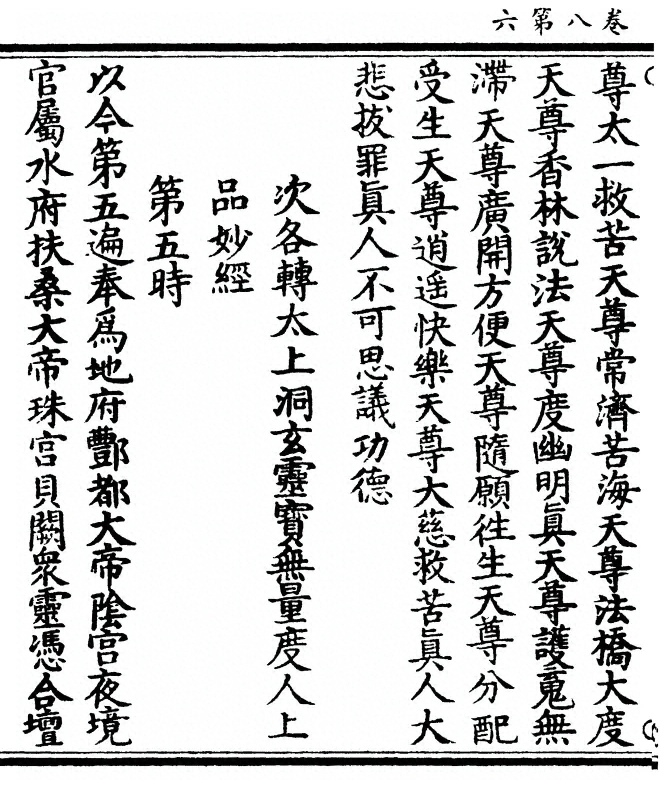 卷八第六
尊太一救苦天尊常濟苦海天尊法橋大度
天尊香林說法天尊度幽明眞天尊護䰟無
滯天尊廣開方便天尊隨願徃生天尊分配
受生天尊逍遥快樂天尊大慈救苦眞人大
悲拔罪眞人不可思議功德
次各轉太上洞玄靈寳無量度人上
品妙經
第五時
以今第五遍奉爲地府酆都大帝隂宫夜境
官屬水府扶桑大帝珠宫貝闕衆靈憑合壇